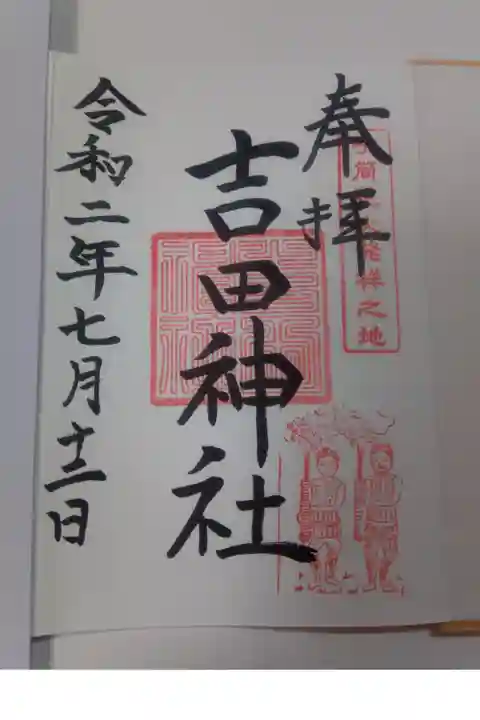 奉拝
手筒花火発祥之地
吉田神社
令和二年七月十二日